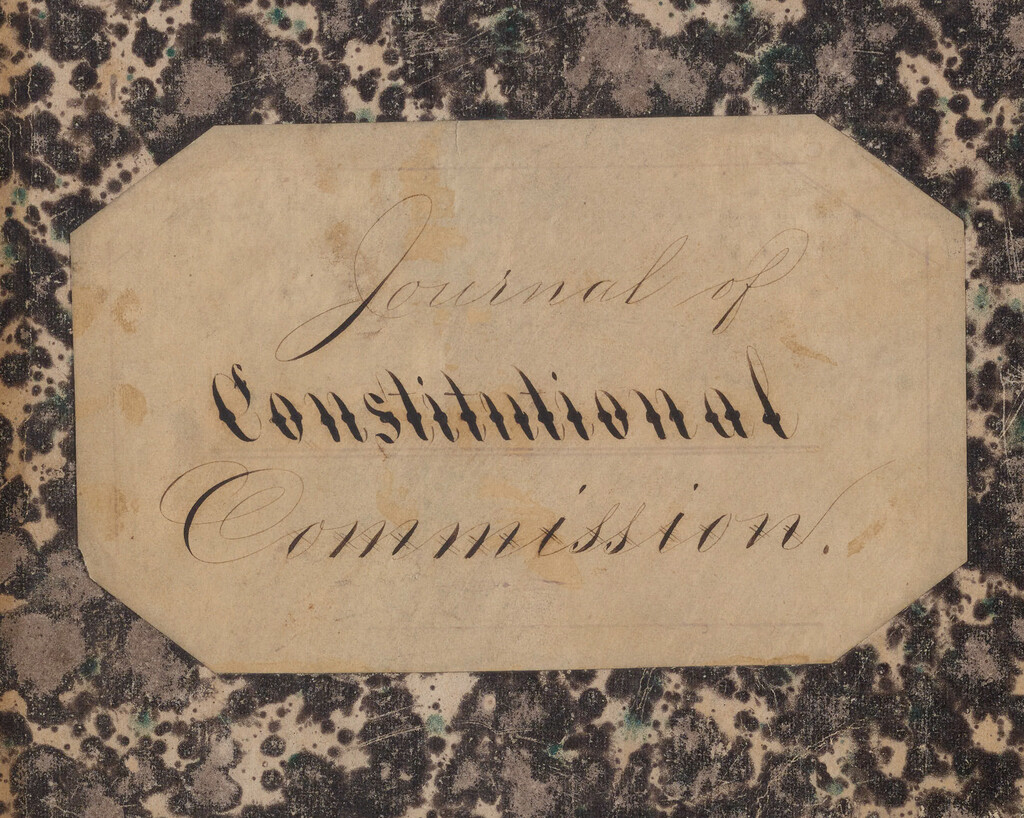 Journal of
Constitutional
Commission.